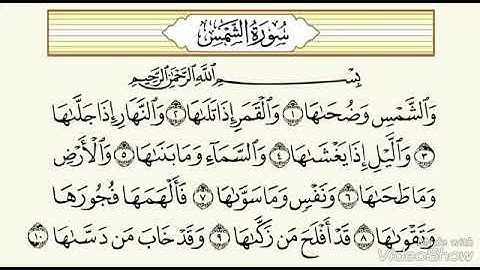 سُورَةُ الشَّمْسِ
بِسْمِ اللَّهِ الرَّحْمَٰنِ الرَّحِيمِ
وَالشَّمْسِ وَضُحَىٰهَا ١ وَالْقَمَرِ إِذَا تَلَىٰهَا ٢ وَالنَّهَارِ إِذَا جَلَّىٰهَا
٣ وَاللَّيْلِ إِذَا يَغْشَىٰهَا ٤ وَالسَّمَآءِ وَمَا بَنَىٰهَا ٥ وَالْأَرْضِ
وَمَا طَحَىٰهَا ٦ وَنَفْسٍ وَمَا سَوَّىٰهَا ٧ فَأَلْهَمَهَا فُجُورَهَا
وَتَقْوَىٰهَا ٨ قَدْ أَفْلَحَ مَن زَكَّىٰهَا ٩ وَقَدْ خَابَ مَن دَسَّىٰهَا ١٠
Made with
VideoShow